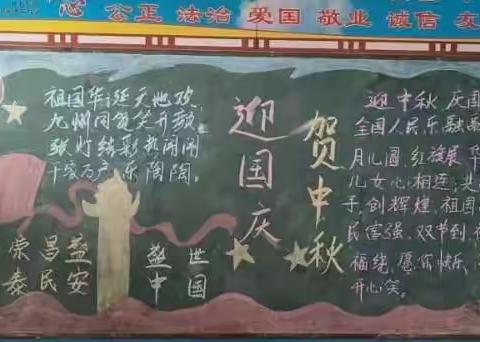 公正 法治 爱国 敬业 诚信 友
祖国华诞天地欢
九州同贺笑开颜
张灯结彩热闹闹
万户乐陶陶。
迎国庆
贺中秋
迎中秋 庆国
全国人民乐融融
月儿圆 红旗展 华
儿女心相连;共
手,创辉煌,祖国
民富强.双节到,福
福绕,愿你快乐
开心笑。
荣昌益
泰民安
盛世
中国